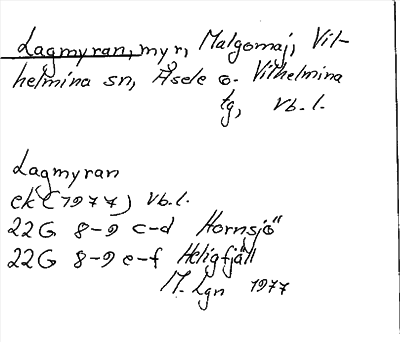 Lagmyran, myr, Malgomaj, Vil-
helmina sn, Åsele o. Vilhelmina
tg, Vb. l.
Lagmyran
ek (1977) Vb. l.
22G 8-9 c-d Hornsjö
22G 8-9 e-f Heligfjäll
M. Lgn 1977